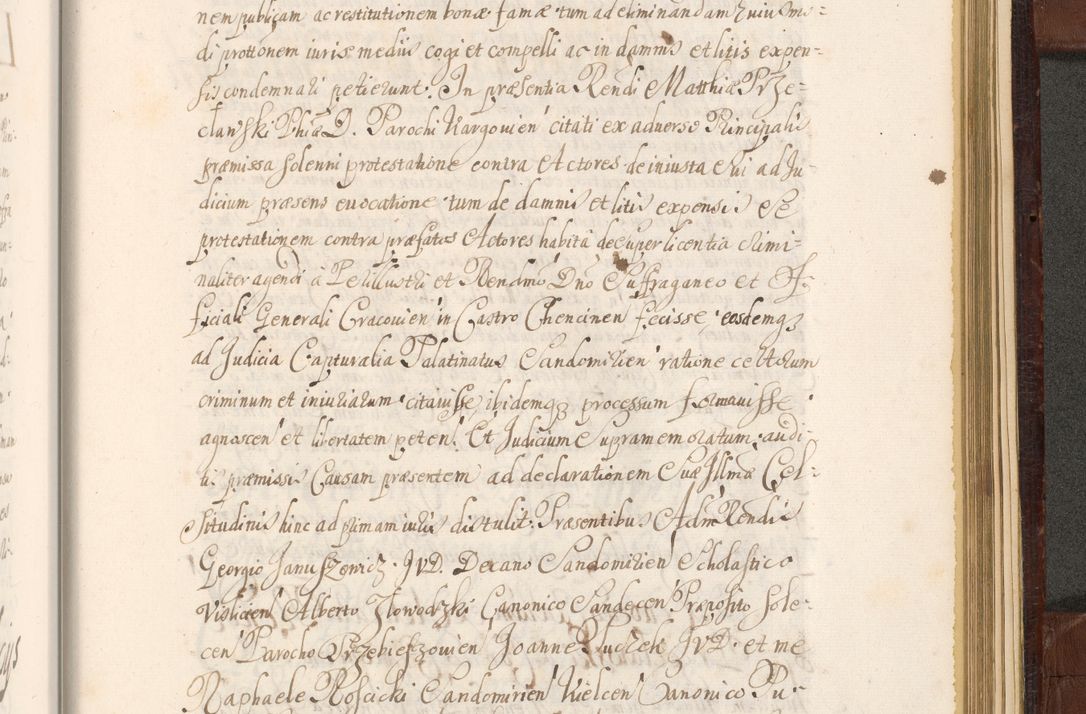 nem publicam ac restitutionem bonæ famæ tum ad eliminandam huiusmo-
di prottonem iuris mediis cogi et compelli ac in damnis et litis expen-
sis condemnari petierunt. In præsentia Rendi Matthiæ Prze-
clawski Phiæ D. Parochi Kargovien citati ex adverso Principali
præmissa solenni protestatione contra Actores de iniusta sui ad Ju-
dicium præsens evocatione tum de damnis et litis expensis se
protestationem contra præfatos Actores habitâ desuper licentia crimi-
naliter agendi à Perillustri et Rendmo Dno Suffraganeo et Of-
ficiali Generali Cracovien in Castro Chencinen fecisse, eosdemq3
ad Judicia Capturalia Palatinatus Sandomirien ratione certorum
criminum et iniuriarum citavisse, ibidemq3 processum formavisse
agnoscen et libertatem peten. Et Judicium Supramemoratum, audi-
tis præmissis Causam præsentem ad declarationem Suæ Illmæ Cel-
situdinis hinc ad primam iuris distulit. Præsentibus Adm Rendis
Georgio Januszowicz JVD. Decano Sandomirien Scholastico
Vislicien Alberto Zlowodzki Canonico Sandecen Præposito Sole-
cen Parocho Przebieszovien Joanne JVD. et me
Raphaele Roscicki Sandomirien Kielcen Canonico Pu-